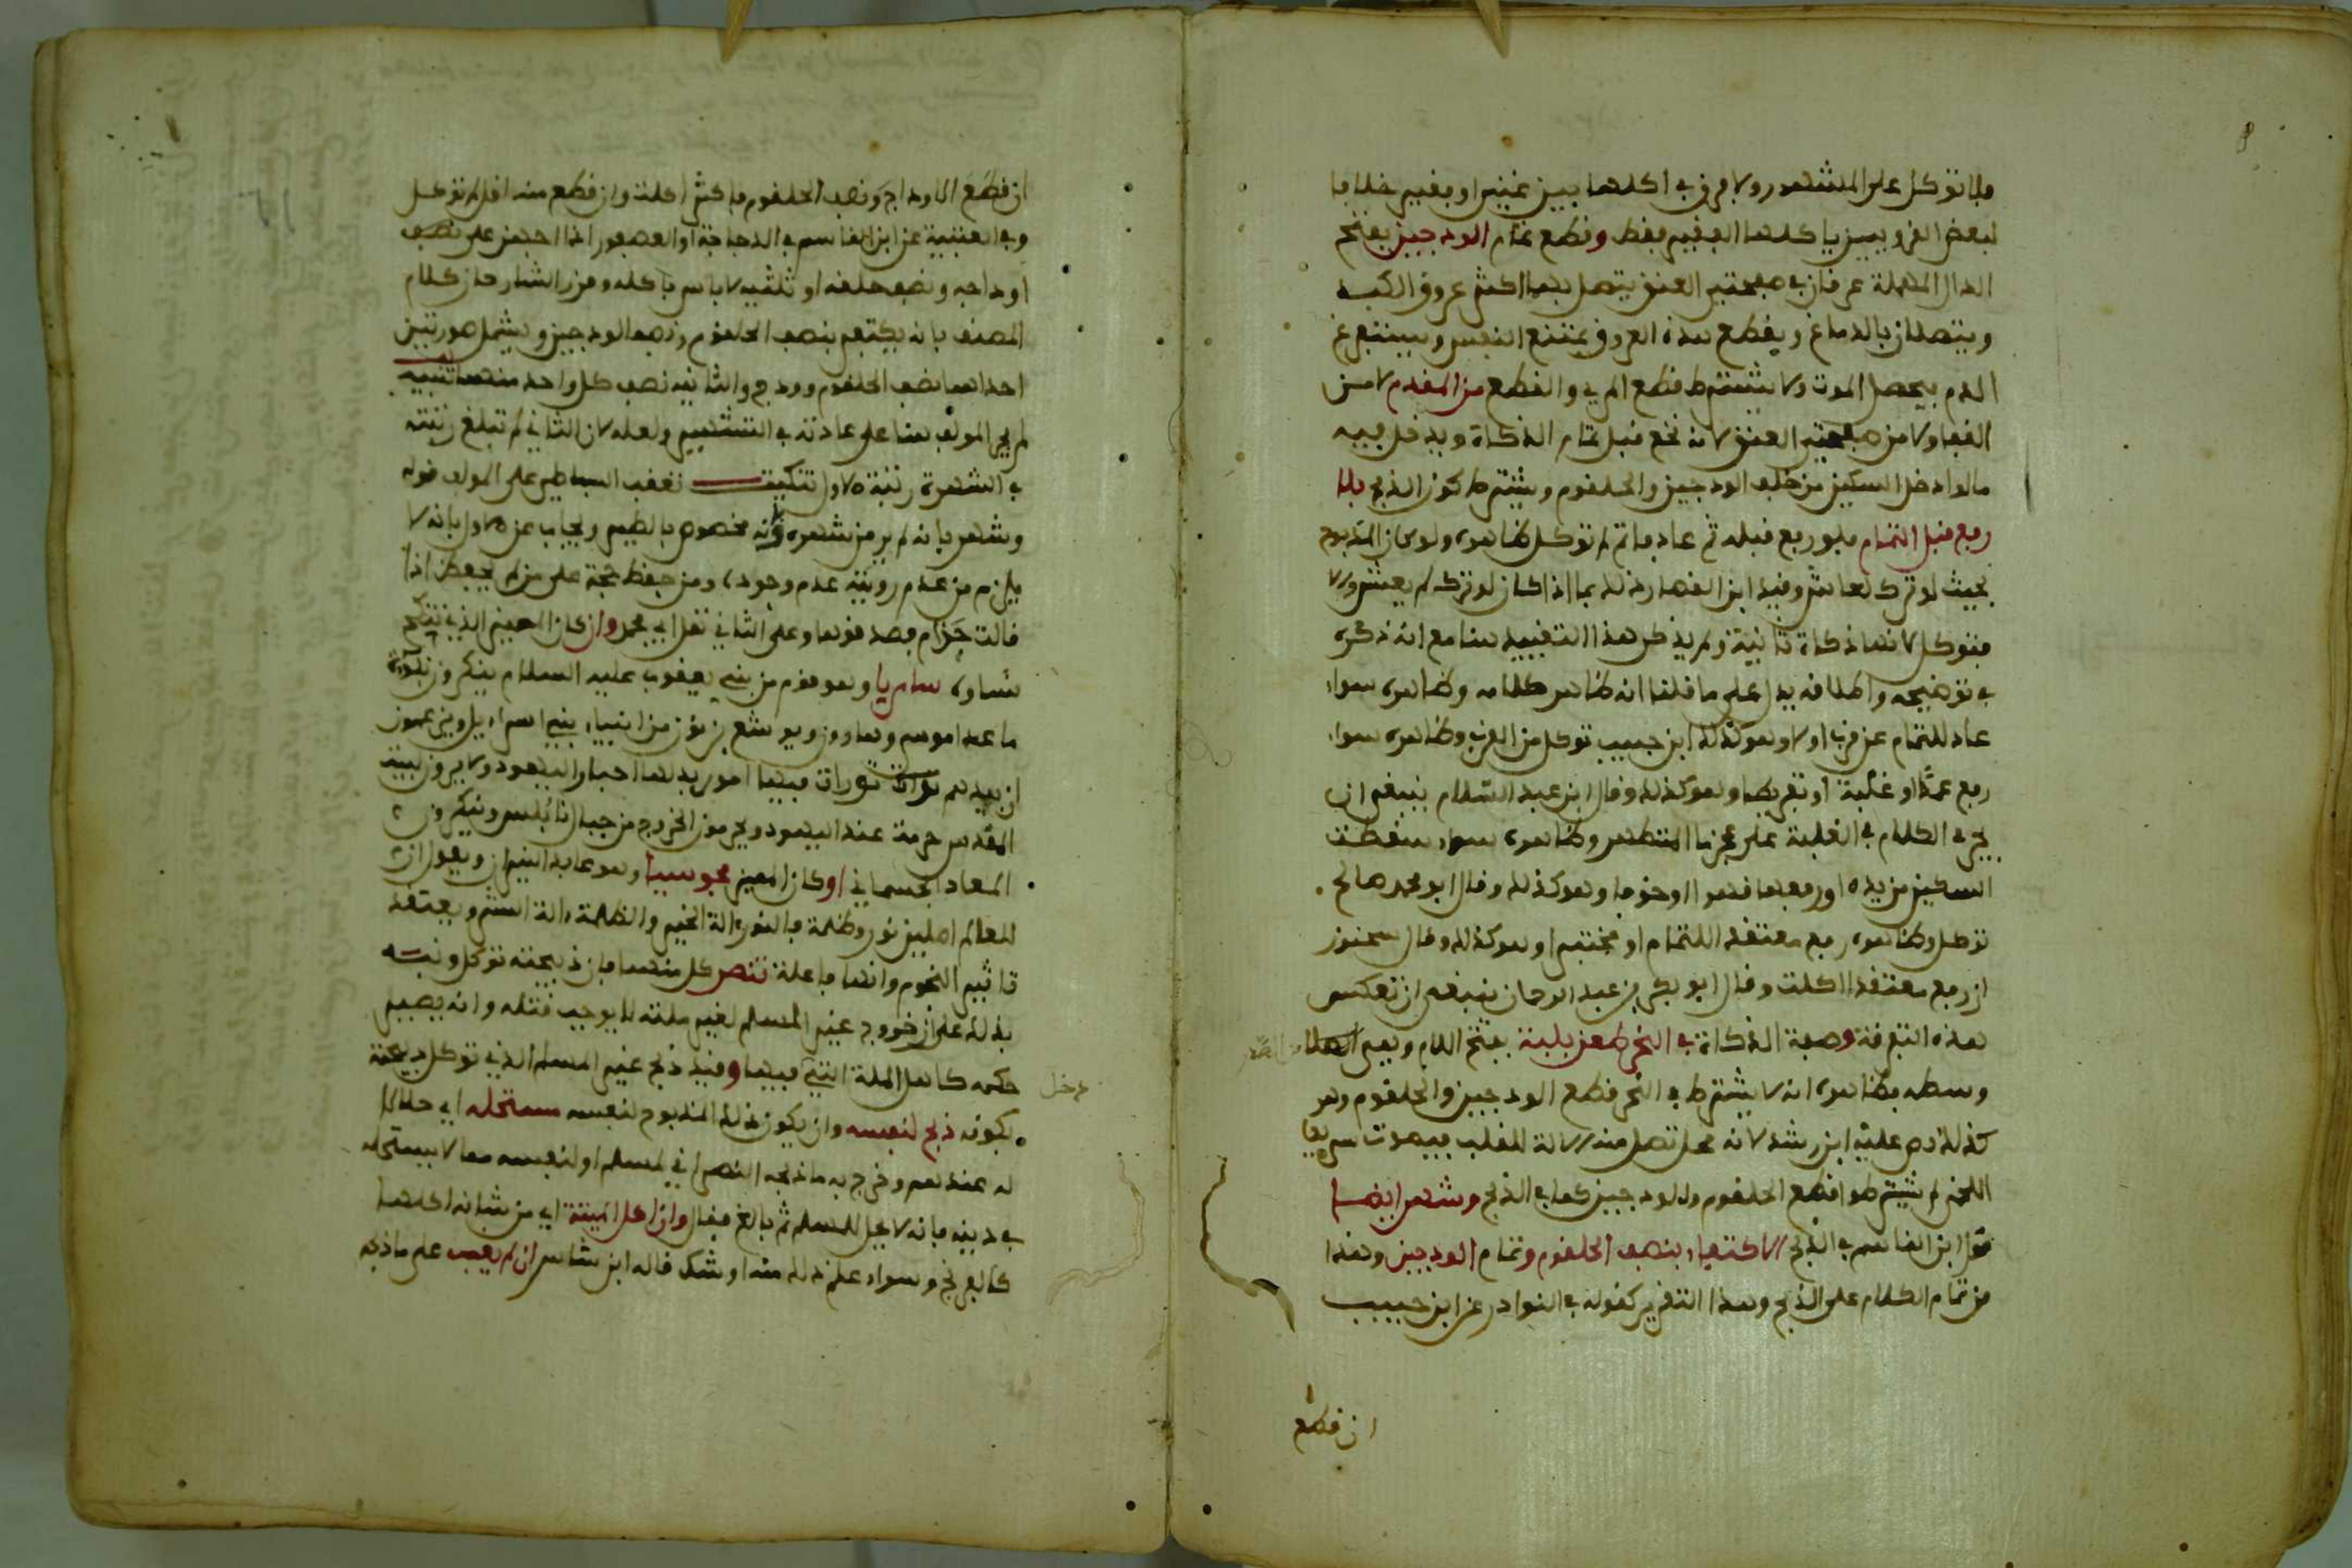 فلا توكل على المشهور ولا فرق في اكلها بين غني او فقير خلافا
لبعض القرويين ياكلها الفقير فقط وقطع تمام الودجين بفتح
الدال المهملة عرفان في صفحتي العنق يتصل بهما اكثر عروق الكبد
ويتصلان بالدماغ وبقطع هذه العروق يمتنع النفس ويستفرغ
الدم فيحصل الموت ولا يشترط قطع المري والقطع من المقدم لا من
القفا ولا من صفحتي العنق لانه نخع قبل تمام الذكاة ويدخل فيه
ما لو ادخل السكين من خلف الودجين والحلقوم ويشترط كون الذبح بلا
رفع قبل التمام فلو رفع قبله ثم عاد فاتم لم توكل ظاهره ولو كان المذبوح
بحيث لو ترك لعاش وقيد ابن القصار ذلك بما اذا كان لو ترك لم يعش والا
فتوكل لانها ذكاة ثانية ولم يذكر هذا التقييد هنا مع انه ذكره
في توضيحه واطلاقه يدل على ما قلنا انه ظاهر كلامه وظاهره سواء
عاد للتمام عن قرب او لا وهو كذلك ابن حبيب توكل من القرب وظاهره سواء
رفع عمدا او غلبة او تفريطا وهو كذلك وقال ابن عبد السلام ينبغي ان
يجري الكلام في الغلبة على عجز ماء المتطهر وظاهره سواء سقطت
السكين من يده او رفعها قهرا او خوفا وهو كذلك وقال ابو محمد صالح
توكل وظاهره رفع معتقدا للتمام او مختبرا وهو كذلك وقال سحنون
ان رفع معتقدا اكلت وقال ابو بكر بن عبد الرحمان ينبغي ان تعكس
هذه التفرقة وصفة الذكاة في النحر طعن بلبة بفتح اللام وهي
وسطه فظاهره انه لا يشترط في النحر قطع الودجين والحلقوم وهو
كذلك نص عليه ابن رشد لانه محل تصل منه الالة للقلب فيموت سريعا
اللخمي لم يشترطوا قطع الحلقوم والودجين كما في الذبح وشهر ايضا
قول ابن القاسم في الذبح الاكتفاء بنصف الحلقوم وتمام الودجين وهذا
من تمام الكلام على الذبح وهذا التقرير كقوله في النوادر عن ابن حبيب
ان قطع
ان قطع الاوداج ونصف الحلقوم فاكثر اكلت وان قطع منه اقل لم توكل
وفي العتبية عن ابن القاسم في الدجاجة او العصفور اذا اجهز على نصف
اوداجه ونصف حلقه او ثلثيه لا باس باكله وقرر الشارحان كلام
المصنف بانه يكتفي بنصف الحلقوم ونصف الودجين ويشمل صورتين
احداهما نصف الحلقوم وودج والثانية نصف كل واحد منهما تنبيه
لم يجر المولف هنا على عادته في التشهير ولعله لان الثاني لم تبلغ رتبته
في الشهرة رتبة الاول تنكيت تعقب البساطي على المولف قوله
وشهر بانه لم ير من شهره وانه مخصوص بالطير ويجاب عن الاول بانه لا
يلزم من عدم رويته عدم وجوده ومن حفظ حجة على من لم يحفظ اذا
قالت حزام فصدقوها وعلى الثاني نقل ابي محمد وان كان المميز الذي تنكح
نساوه سامريا وهو قوم من بني يعقوب عليه السلام ينكرون نبوة
ما عدا موسى وهارون ويوشع بن نون من انبياء بني اسراءيل ويزعمون
ان بيدهم توراة فيها امور بدلها احبار اليهود ولا يرون لبيت
المقدس حرمة عند اليهود ويحرمون الخروج من جبال نابلس وينكرون
المعاد الجسماني او كان المميز مجوسيا وهو عابد النيران ويقول ان
للعالم اصلين نور وظلمة فالنور الة الخير والظلمة الة الشر ويعتقد
تاثير النجوم وانها فاعلة تنصر كل منهما فان ذبيحته توكل ونبه
بذلك على ان خروج غير المسلم لغير ملته لا يوجب قتله وانه يصير
حكمه كاهل الملة التي فيها وقيد ذبح غير المسلم الذي توكل ذبيحته
دخل
بكونه ذبح لنفسه وان يكون ذلك المذبوح لنفسه مستحله اي حلالا
له عندهم وخرج به ما ذبحه النصراني لمسلم او لنفسه مما لا يستحله
في دينه فانه لا يحل للمسلم ثم بالغ فقال وان اكل الميتة اي من شانه اكلها
كالفرنج وسواء علم ذلك منه او شك قاله ابن شاس ان لم يغب على ما ذبحه